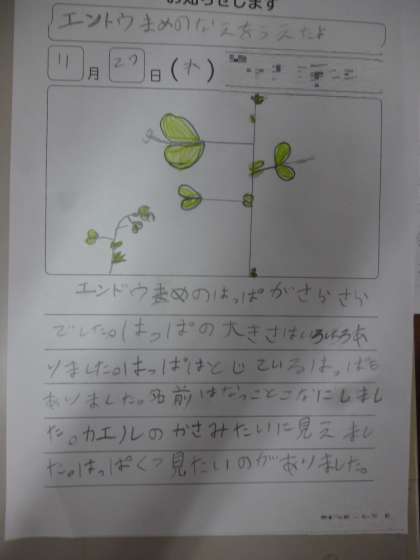 お知らせします
エンドウまめのなえをうえたよ
11月27日(水)
エンドウまめのはっぱがさらさら
でした。はっぱの大きさはいろいろあ
りました。はっぱはとじているはっぱも
ありました。名前はなっことこなにしまし
た。カエルのかさみたいに見えまし
た。はっぱくつ見たいのがありました。